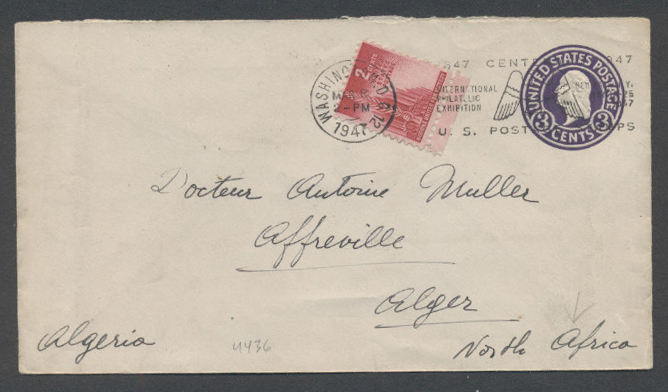 WASHINGTON, D.C. 12
MAY
2-PM
1947
2
1847 CENTENARY 1947
INTERNATIONAL
PHILATELIC
EXHIBITION
U.S. POSTAGE STAMPS
UNITED STATES POSTAGE
3 CENTS 3
Docteur Antoine Muller
Affreville
Alger
Algeria
U436
North Africa